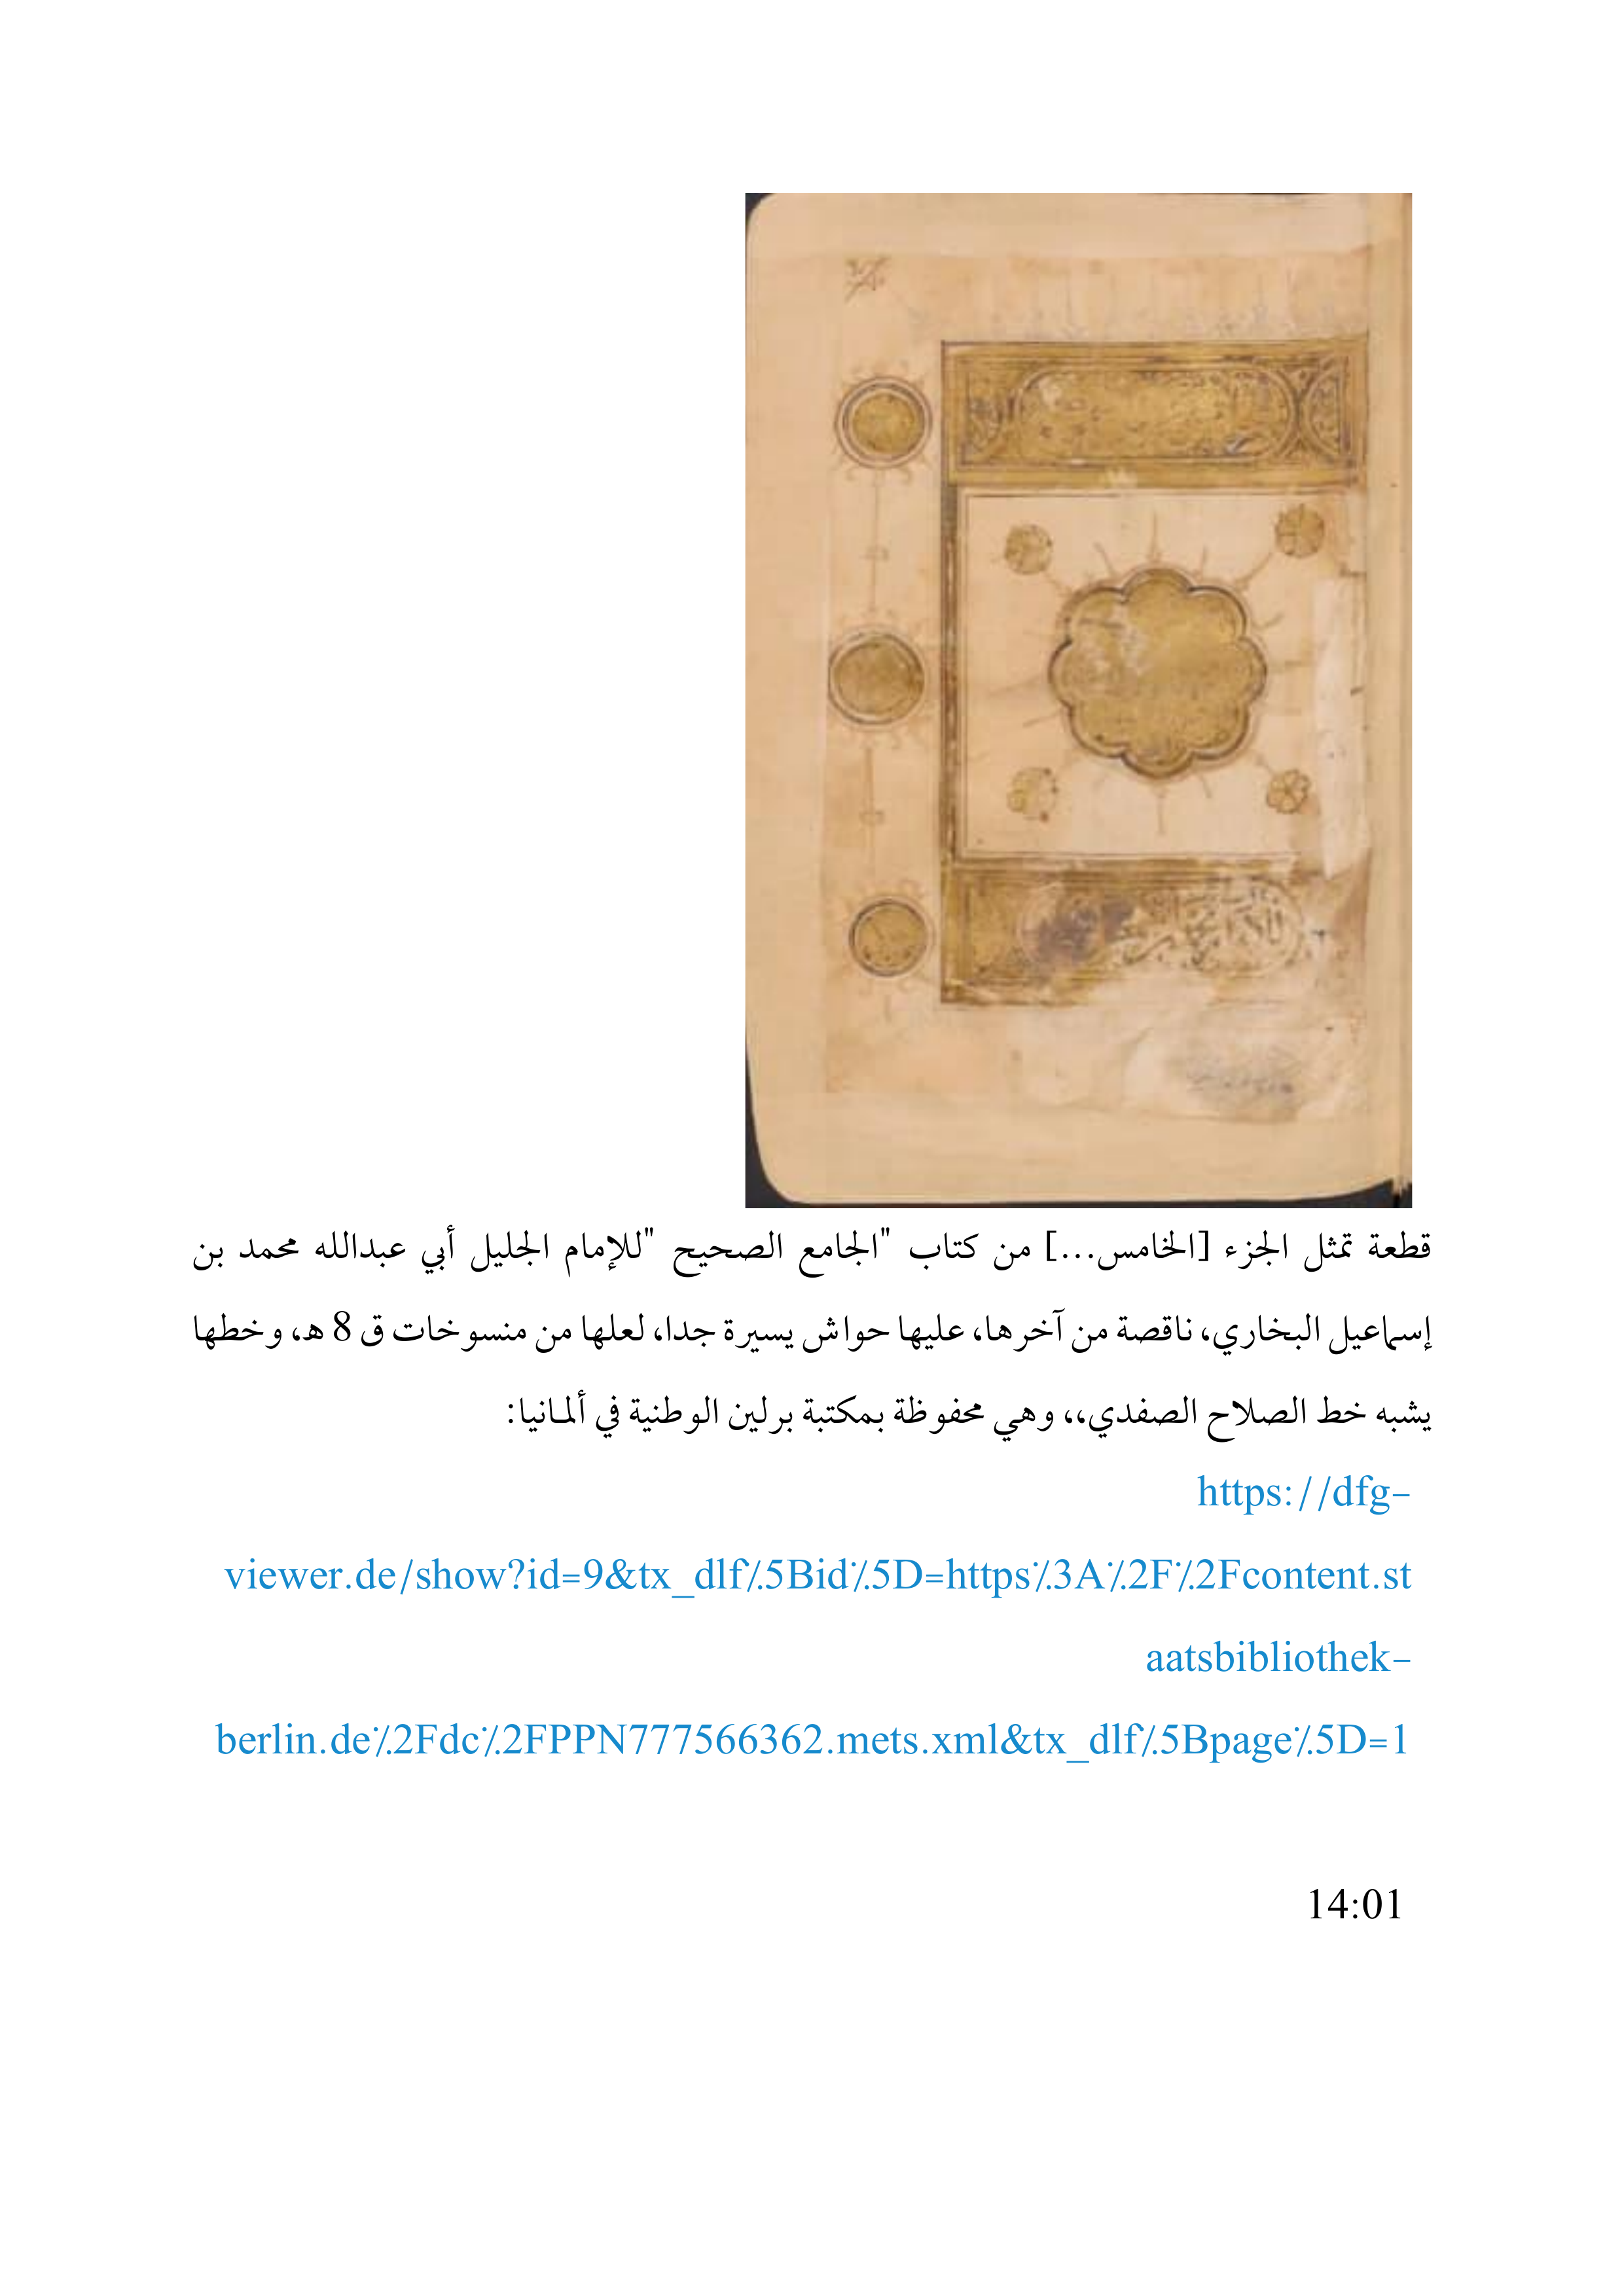 قطعة تمثل الجزء [الخامس...] من كتاب "الجامع الصحيح "للإمام الجليل أبي عبدالله محمد بن
إسماعيل البخاري، ناقصة من آخرها، عليها حواش يسيرة جدا، لعلها من منسوخات ق 8 هـ، وخطها
يشبه خط الصلاح الصفدي،، وهي محفوظة بمكتبة برلين الوطنية في ألمانيا:
https://dfg-
viewer.de/show?id=9&tx_dlf٪5Bid٪5D=https٪3A٪2F٪2Fcontent.st
aatsbibliothek-
berlin.de٪2Fdc٪2FPPN777566362.mets.xml&tx_dlf٪5Bpage٪5D=1
14:01